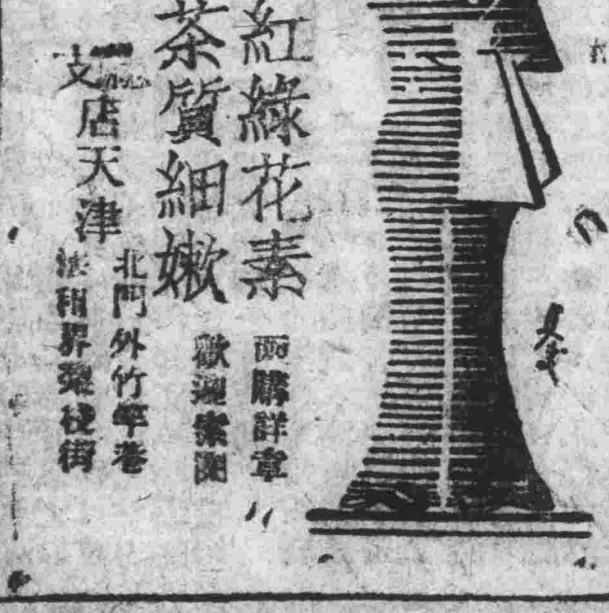 紅綠花素
茶質細嫩
函購詳章
歡迎索閱
支店天津
北門外竹竿巷
法租界梨棧街